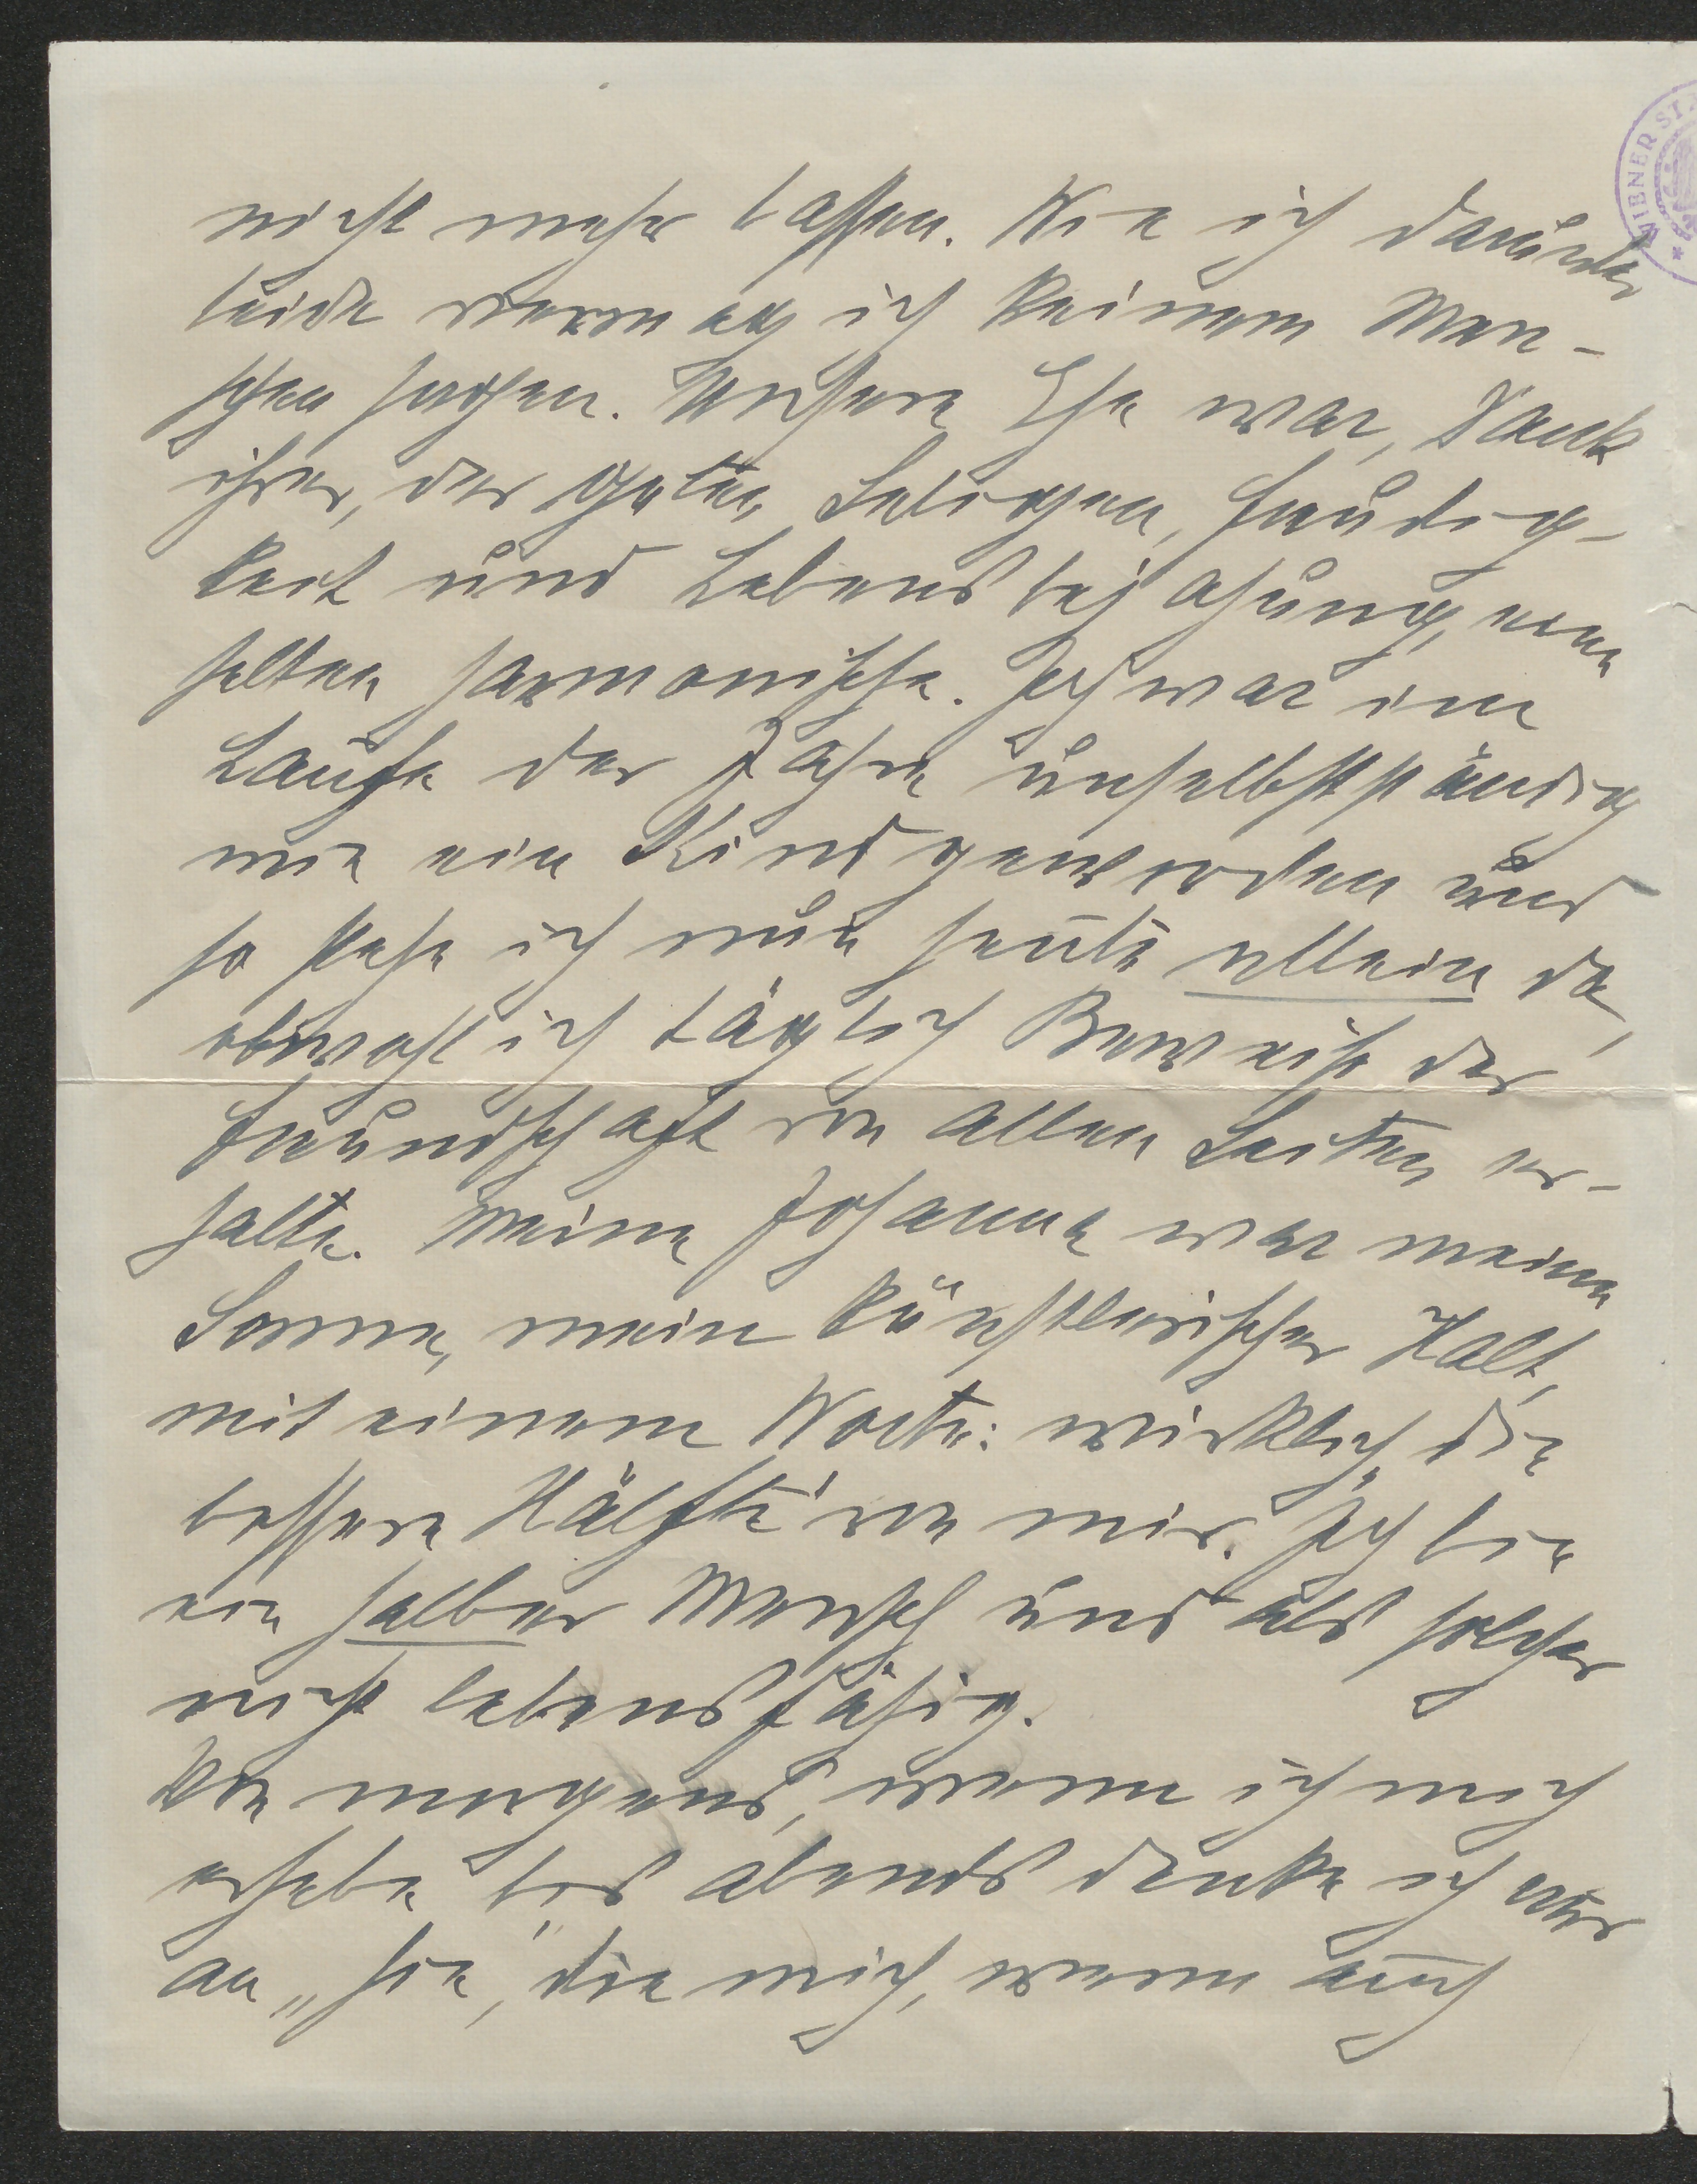 nicht mehr lassen. Wie ich darunter
leide vermag ich keinem Men-
schen sagen. Unsere Ehe war, Dank
ihrer, der guten, Seligen, Freudig-
keit und Lebensbejahung, eine
selten harmonische. Ich war im
Laufe der Jahre unselbstständig
wie ein Kind geworden und
so stehe ich nun heute allein da,
obwohl ich täglich Beweise der
Freundschaft von allen Seiten er-
halte. Meine Johanna war meine
Sonne, mein künstlerischer Halt,
mit einem Worte: wirklich die
bessere Hälfte von mir. Ich bin
ein halber Mensch und als solcher
nicht lebensfähig.
Von morgens, wenn ich mich
erhebe, bis abends denke ich nur
an „sie", die mich, wenn auch
WIENER ST